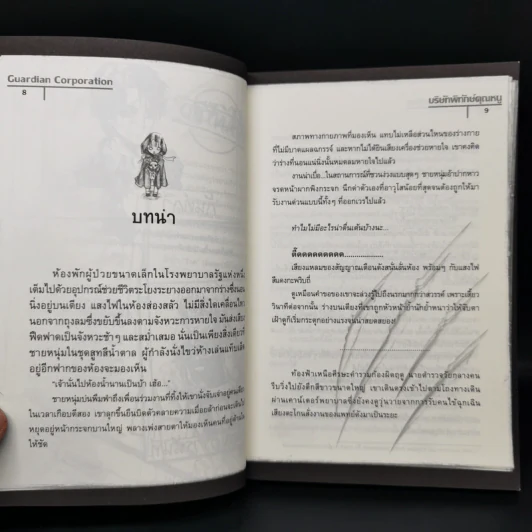 Guardian Corporation
8
บทนำ
ห้องพักผู้ป่วยขนาดเล็กในโรงพยาบาลรัฐแห่งหนึ่ง
เต็มไปด้วยอุปกรณ์ช่วยชีวิตระโยงระยางออกมาจากร่างซึ่งนอน
นิ่งอยู่บนเตียง แสงไฟในห้องส่องสลัว ไม่มีสิ่งใดเคลื่อนไหว
นอกจากถุงลมซึ่งขยับขึ้นลงตามจังหวะการหายใจ มันส่งเสียง
ฟืดฟาดเป็นจังหวะช้าๆ และสม่ำเสมอ นั่นเป็นเพียงสิ่งเดียวที่
ชายหนุ่มในชุดสูทสีน้ำตาล ผู้กำลังนั่งไขว่ห้างเล่นแท็บเล็ต
อยู่อีกฟากของห้องจะมองเห็น
"เจ้านั่นไปห้องน้ำนานเป็นบ้า เฮ้อ..."
ชายหนุ่มบ่นพึมพำถึงเพื่อนร่วมงานที่ทิ้งให้เขานั่งจับเจ่าอยู่คนเดียว
ในเวลาเกือบตีสอง เขาลุกขึ้นยืนบิดตัวคลายความเมื่อยล้าก่อนจะเดินไป
หยุดอยู่หน้ากระจกบานใหญ่ พลางเพ่งสายตาให้มองเห็นคนที่อยู่ด้านใน
ให้ชัด
บริษัทพิทักษ์คุณหนู
9
สภาพทางกายภาพที่มองเห็น แทบไม่เหลือส่วนไหนของร่างกาย
ที่ไม่มีบาดแผลฉกรรจ์ และหากไม่ได้ยินเสียงเครื่องช่วยหายใจ เขาคงคิด
ว่าร่างที่นอนแน่นิ่งนั้นหมดลมหายใจไปแล้ว
งานน่าเบื่อ...ในสถานการณ์ที่ชวนง่วงแบบสุดๆ ชายหนุ่มอ้าปากหาว
จรดหน้าผากพิงกระจก นึกด่าตัวเองที่อาวุโสน้อยที่สุดจนต้องถูกให้มา
รับงานด่วนแบบนี้ทั้งๆ ที่ออกเวรไปแล้ว
ทำไมไม่มีอะไรน่าตื่นเต้นบ้างนะ...
ตี๊ดดดดดดดดดด..................
เสียงแหลมของสัญญาณเตือนดังสนั่นลั่นห้อง พร้อมๆ กับแสงไฟ
สีแดงกะพริบถี่
ดูเหมือนคำขอของเขาจะล่วงรู้ไปถึงนรกมากกว่าสวรรค์ เพราะเสี้ยว
วินาทีต่อจากนั้น ร่างบนเตียงที่เขาถูกหัวหน้าย้ำนักย้ำหนาว่าให้จับตา
เฝ้าดูก็เริ่มกระตุกอย่างแรงจนน่าสยดสยอง
ท้องฟ้าเหนือศีรษะดำรามก้องผิดฤดู นายตำรวจวัยกลางคน
รีบวิ่งไปยังตึกสีขาวขนาดใหญ่ เขาเดินตรงเข้าไปตามโถงทางเดิน
ผ่านเคาน์เตอร์พยาบาลที่ยังคงดูวุ่นวายจากการรับคนไข้ฉุกเฉิน
เสียงตะโกนสั่งงานของแพทย์ดังมาเป็นระยะ